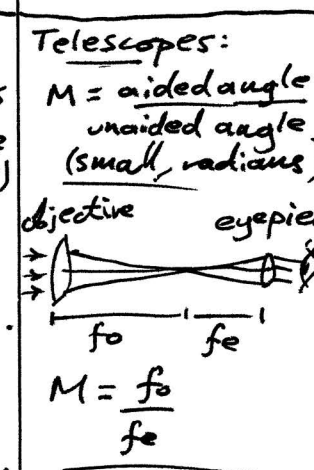 Telescopes:
M = aided angle
unaided angle
(small, radians)
objective
fo
fe
M = fo
fe